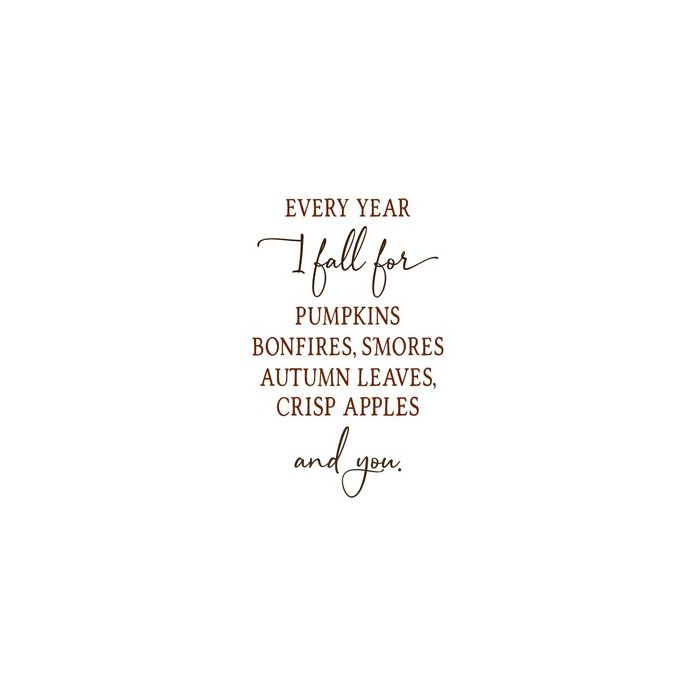 EVERY YEAR
I fall for
PUMPKINS
BONFIRES, S'MORES
AUTUMN LEAVES,
CRISP APPLES
and you.